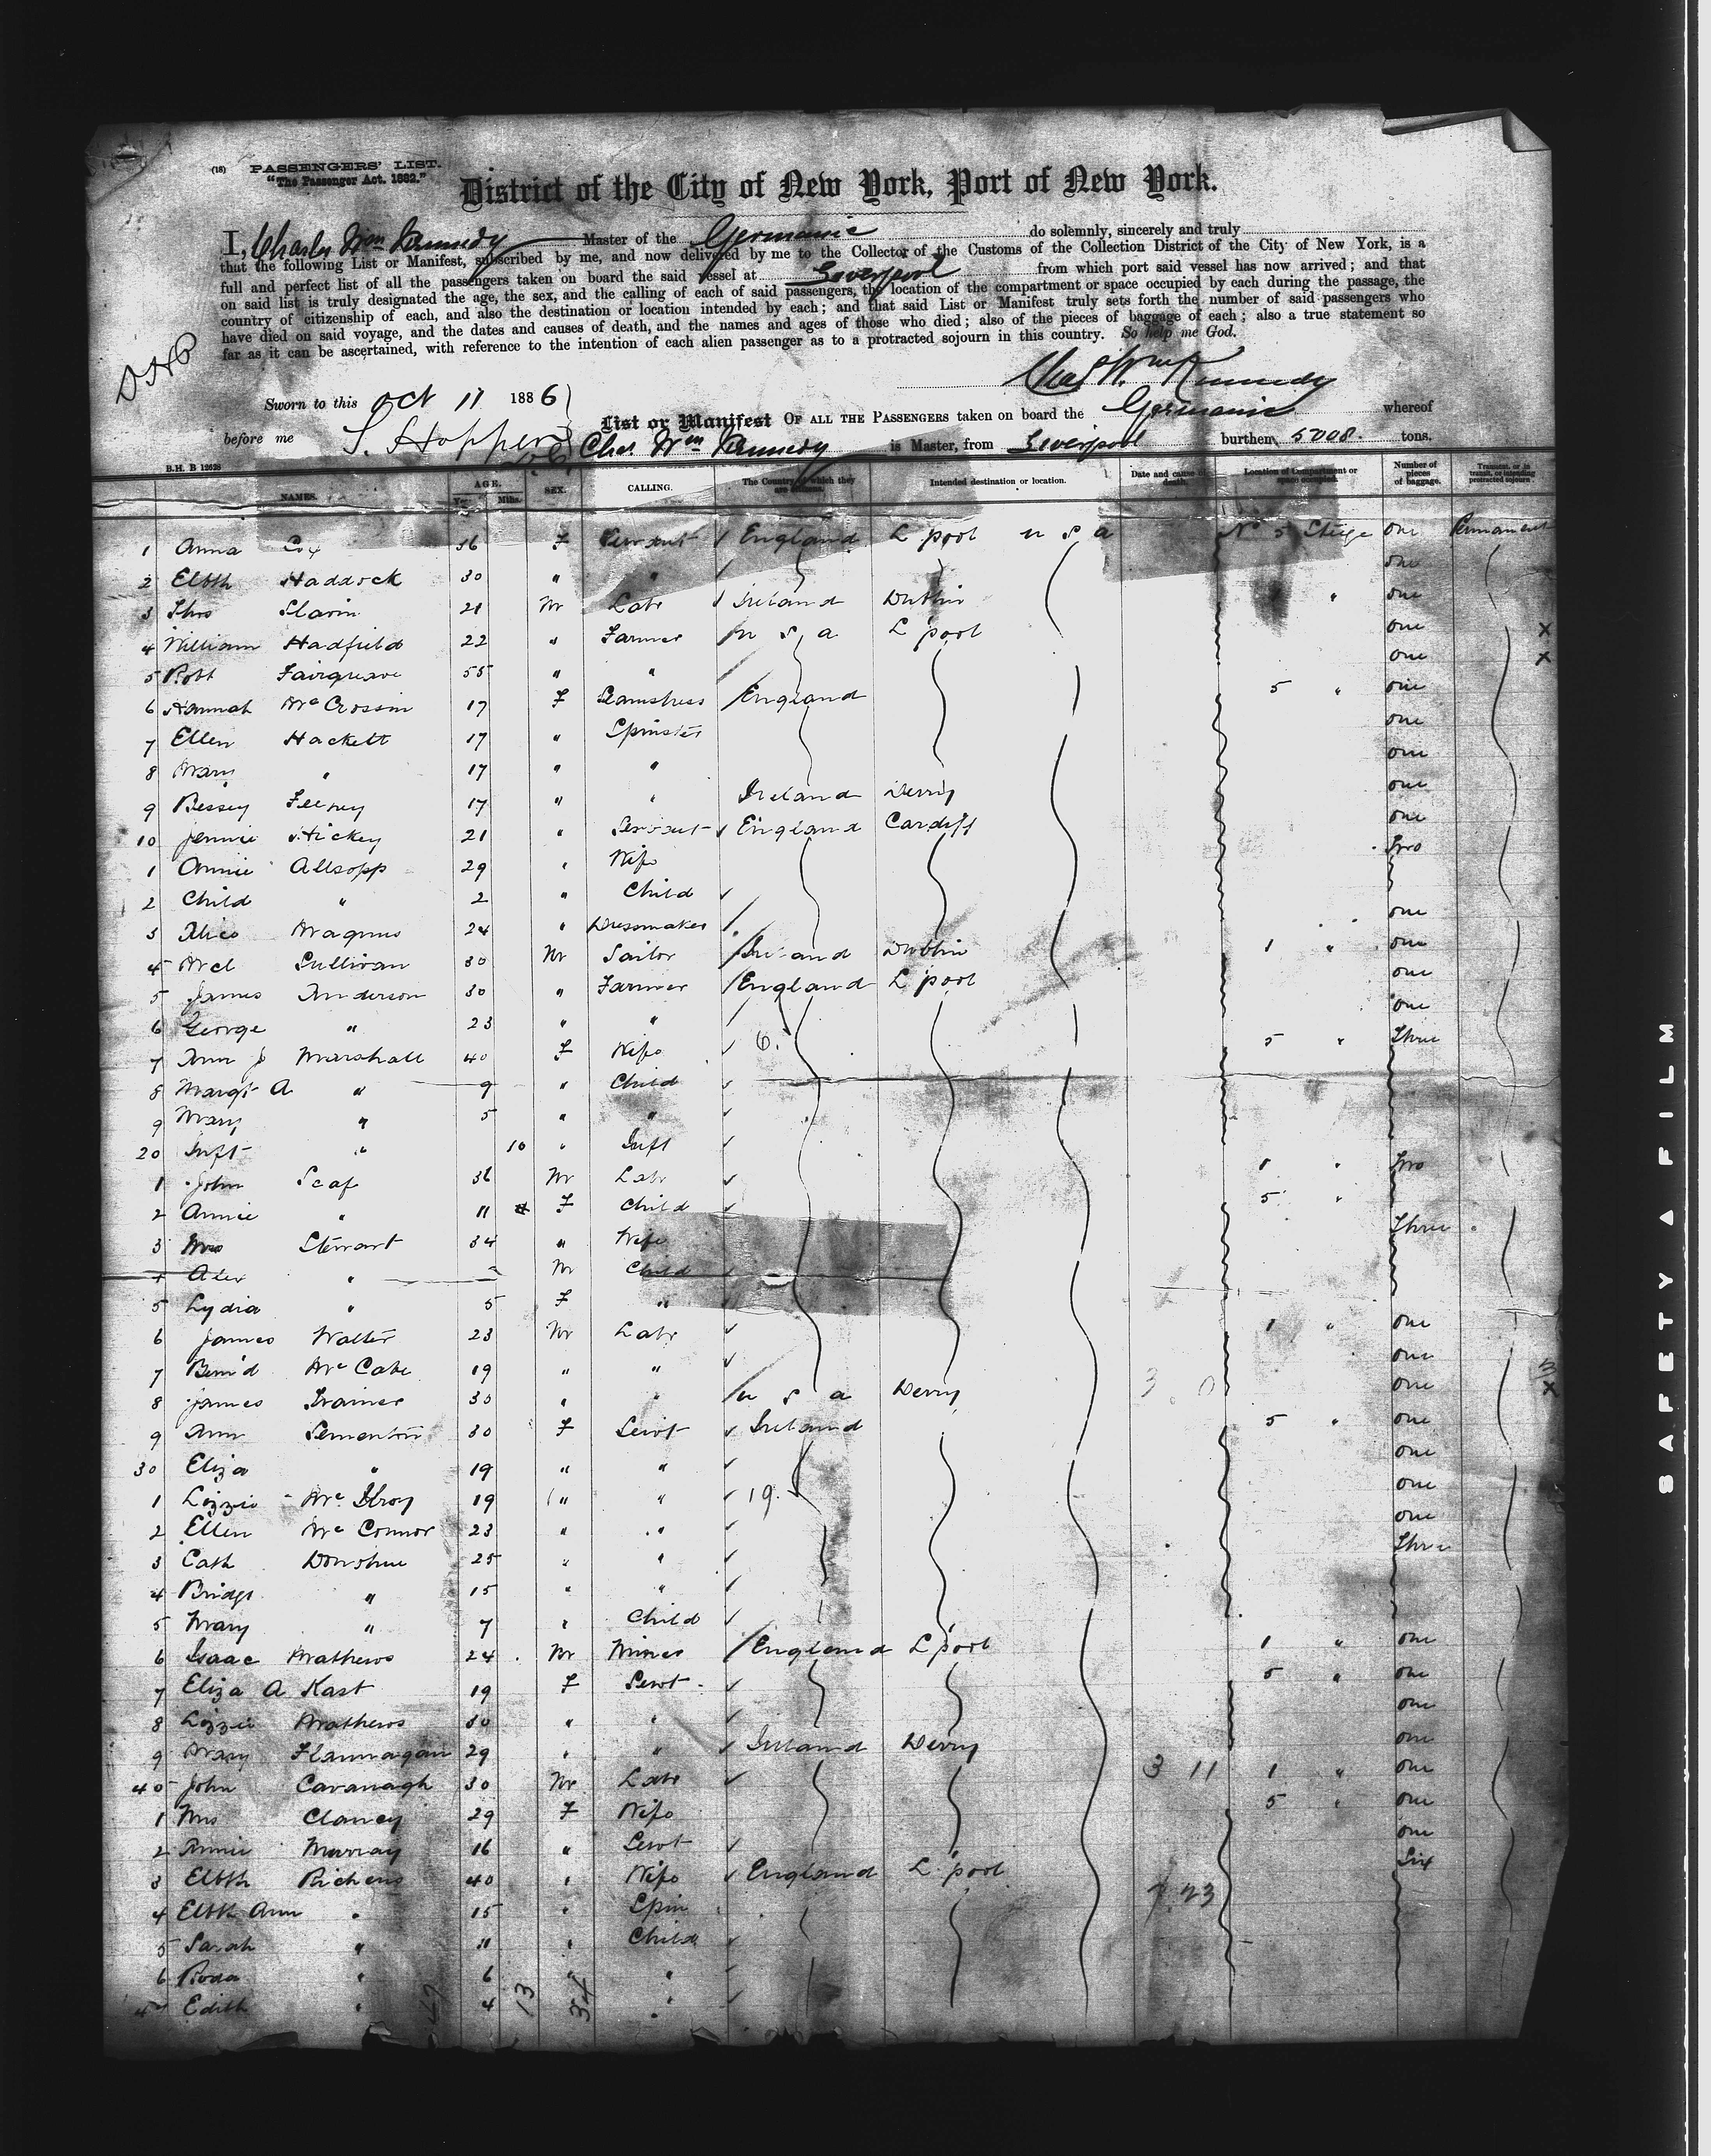 (18) PASSENGERS' LIST.
"The Passenger Act. 1882."
District of the City of New York, Port of New York.
I, Charles Wm Kennedy Master of the Germanic do solemnly, sincerely and truly
that the following List or Manifest, subscribed by me, and now delivered by me to the Collector of the Customs of the Collection District of the City of New York, is a
full and perfect list of all the passengers taken on board the said vessel at Liverpool from which port said vessel has now arrived; and that
on said list is truly designated the age, the sex, and the calling of each of said passengers, the location of the compartment or space occupied by each during the passage, the
country of citizenship of each, and also the destination or location intended by each; and that said List or Manifest truly sets forth the number of said passengers who
have died on said voyage, and the dates and causes of death, and the names and ages of those who died; also of the pieces of baggage of each; also a true statement so
far as it can be ascertained, with reference to the intention of each alien passenger as to a protracted sojourn in this country. So help me God.
Chas Wm Kennedy
Sworn to this Oct 11 1886
List or Manifest OF ALL THE PASSENGERS taken on board the Germanic whereof
before me S. Hopper
Chas. Wm Kennedy is Master, from Liverpool burthen 5008. tons.
B.H. B 12628
NAMES. AGE. Yrs. Mths. SEX. CALLING. The Country of which they are citizens. Intended destination or location. Date and cause of death. Location of Compartment or space occupied. Number of pieces of baggage. Transient, or in transit, or intending protracted sojourn.
1 Anna Cox 36 F Servant England L'pool U S A No 5 Stge one Permanent
2 Elbth Haddock 30 " " one
3 Thos Slavin 21 M Labr Ireland Dublin 1 " one
4 William Hadfield 22 " Farmer U S A L'pool one x
5 Robt Fairgreave 55 " " one x
6 Hannah McCrossin 17 F Seamstress England 5 " one
7 Ellen Hackett 17 " Spinster one
8 Mary " 17 " " one
9 Bessey Feeney 17 " " Ireland Derry one
10 Jennie Hickey 21 " Servant England Cardiff one
1 Annie Allsopp 29 " Wife Two
2 Child " 2 " Child
3 Alice Magnus 24 " Dressmaker one
4 Ml Sullivan 30 M Tailor Ireland Dublin 1 " one
5 James Anderson 30 " Farmer England L'pool one
6 George " 23 " " one
7 Ann J Marshall 40 F Wife 6. 5 " Three
8 Margt A " 9 " Child
9 Mary " 5 " "
20 Inft " 10 " Inft
1 John Scaf 36 M Labr 1 " Two
2 Annie " 11 F Child 5 "
3 Mrs Stewart 34 " Wife Three
4 Alex " M Child
5 Lydia " 5 F "
6 James Walter 23 M Labr 1 " one
7 Bern'd McCabe 19 " " one
8 James Trainer 30 " " U S A Derry 3 0 one x
9 Ann 30 F Servt Ireland 5 " one
30 Eliza " 19 " " one
1 Lizzie McIlroy 19 " " 19. one
2 Ellen McConnor 23 " " one
3 Cath Donohue 25 " " Three
4 Bridgt " 15 " "
5 Mary " 7 " Child
6 Isaac Mathews 24 M Miner England L'pool 1 " one
7 Eliza A Kast 19 F Servt 5 " one
8 Lizzie Mathews 30 " " one
9 Mary Flannagan 29 " " Ireland Derry one
40 John Cavanagh 30 M Labr 3 11 1 " one
1 Mrs Clancy 29 F Wife 5 " one
2 Annie Murray 16 " Servt one
3 Elbth Richens 40 " Wife England L'pool Six
4 Elbth Ann " 15 " Spin 7 23
5 Sarah " 11 " Child
6 Roda " 6 " "
47 Edith " 4 " "
47 13 34
SAFETY FILM